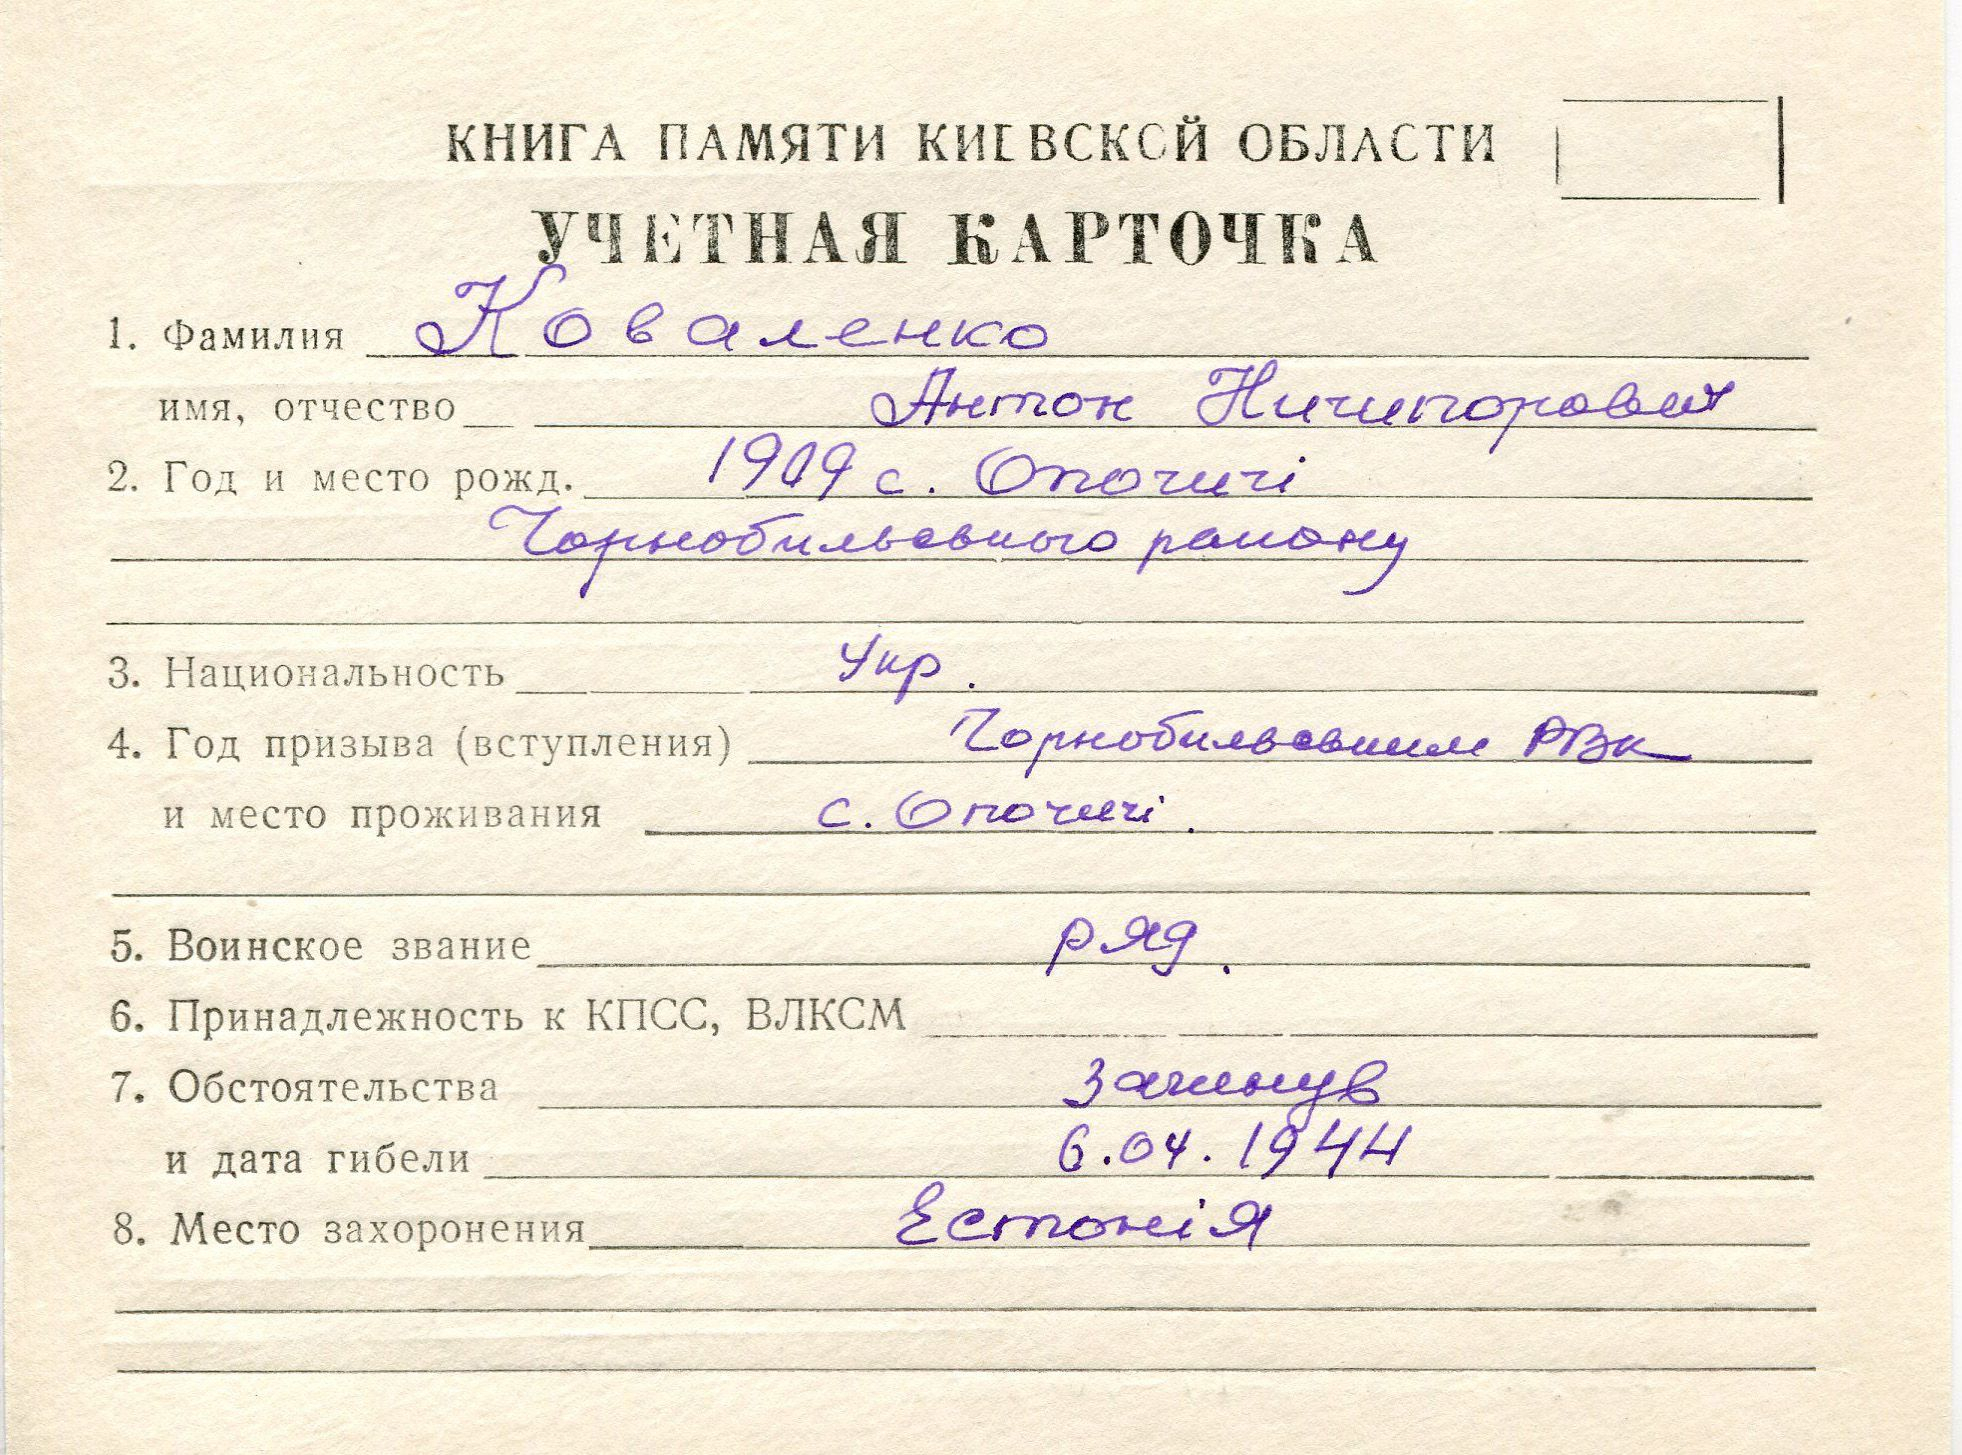 КНИГА ПАМЯТИ КИЕВСКОЙ ОБЛАСТИ
УЧЕТНАЯ КАРТОЧКА
1. Фамилия Коваленко
имя, отчество Антон Ничипорович
2. Год и место рожд. 1909 с. Опочичі
Чорнобильського району
3. Национальность Укр.
4. Год призыва (вступления) Чорнобильським РВК
и место проживания с. Опочичі.
5. Воинское звание ряд.
6. Принадлежность к КПСС, ВЛКСМ
7. Обстоятельства загинув
и дата гибели 6.04.1944
8. Место захоронения Естонія